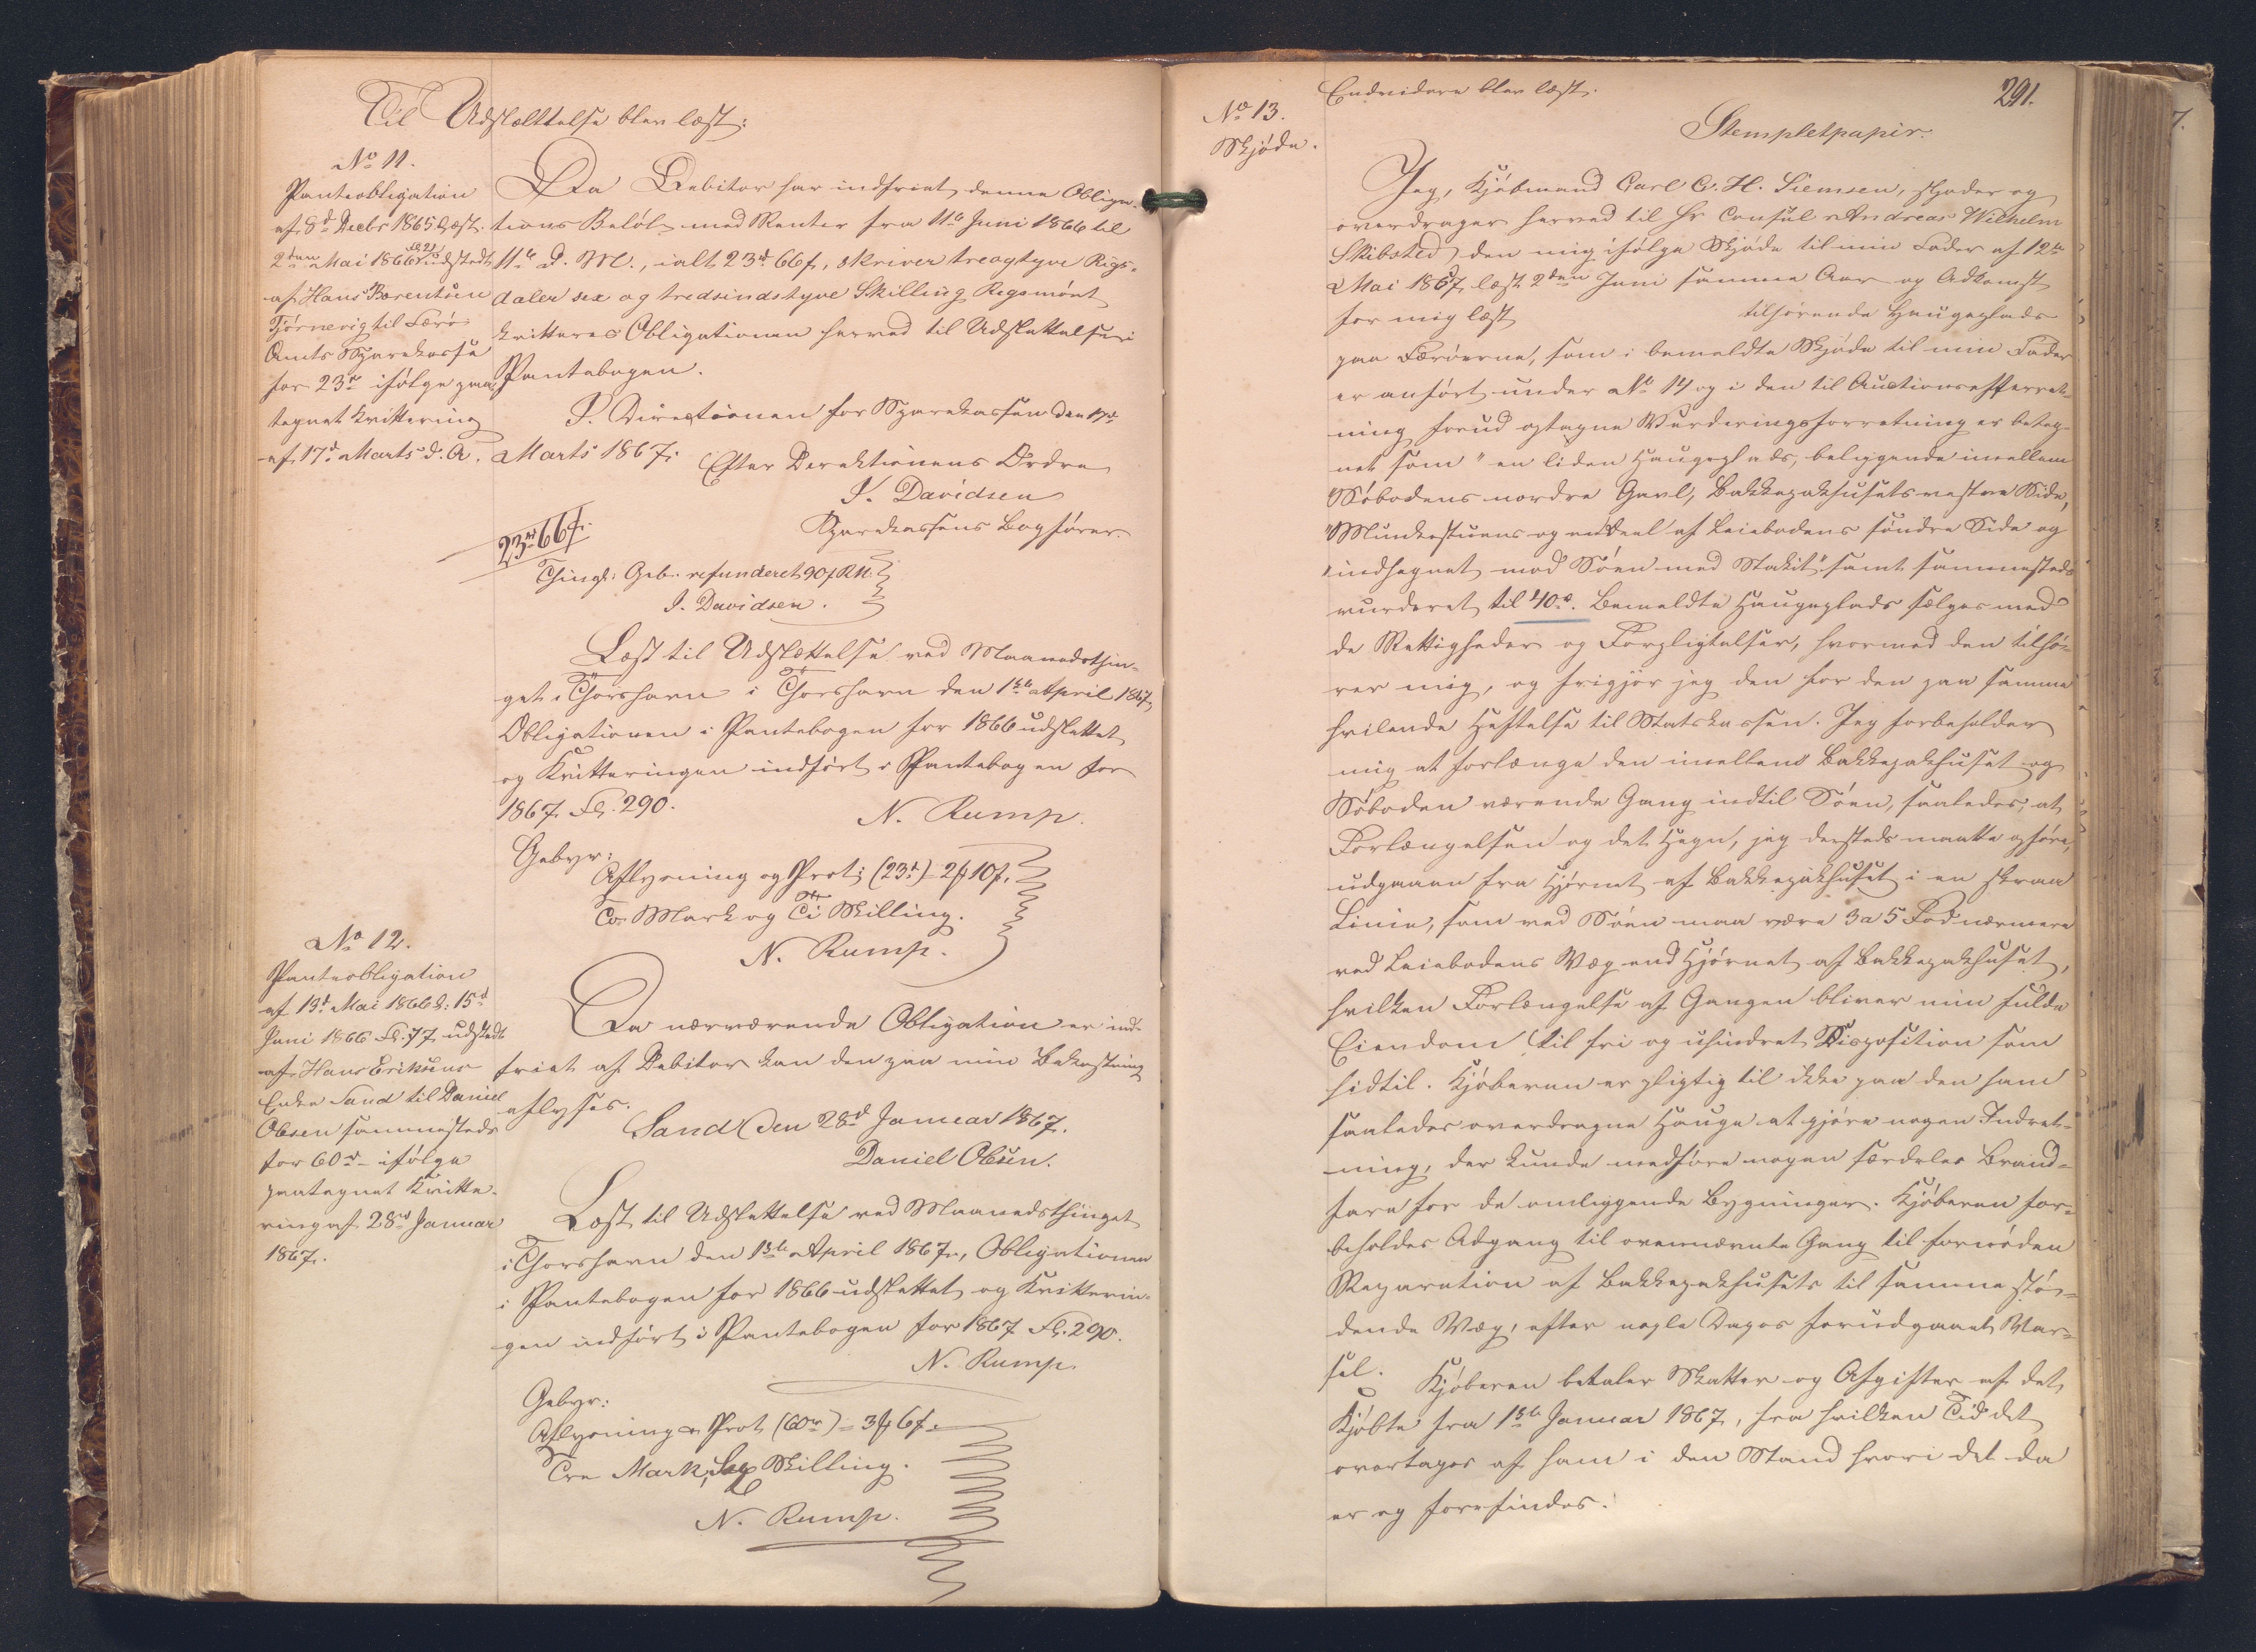 Til Udslættelse blev læst:
No 11.
Panteobligation
af 8d Decbr 1865 læst
2den Mai 1866 Fol. 21 udstedt
af Hans Børentsen
Tjørnevig til Færø
Amts Sparekasse
for 23rd ifølge paa-
tegnet Kvittering
af 17d Marts d. A.
Da Debitor har indfriet denne Obliga-
tions Beløb med Renter fra 11te Juni 1866 til
11te d. M., ialt 23rd 66s, skriver treogtyve Rigs-
daler sex og tredsindstyve Skilling Rigsmønt
kvitteres Obligationen herved til Udslettelse i
Pantebogen.
P. Directionen for Sparekassen den 17de
Marts 1867.
Efter Direktionens Ordre
J. Davidsen
Sparekassens Bogfører.
23rd 66s.
Thingl: Geb. refunderet 90s RM.
J. Davidsen.
Læst til Udslættelse ved Maanedsthin-
get i Thorshavn i Thorshavn den 1ste April 1867,
Obligationen i Pantebogen for 1866 udslettet
og Kvitteringen indført i Pantebogen for
1867 Fol. 290.
N. Rump.
Gebyr:
Aflysning og Prot: (23rd) = 2 10s.
To Mark og Ti Skilling.
N. Rump.
No 12.
Panteobligation
af 13d Mai 1866 l: 15d
Juni 1866 Fol. 77 udstedt
af Hans Eriksens
Enke Sand til Daniel
Olsen sammesteds
for 60rd ifølge
paategnet Kvitte-
ring af 28d Januar
1867.
Da nærværende Obligation er ind-
friet af Debitor kan den paa min Bekostning
aflyses.
Sand den 28d Januar 1867.
Daniel Olsen.
Læst til Udslettelse ved Maanedsthinget
i Thorshavn den 1ste April 1867, Obligationen
i Pantebogen for 1866 udslettet og Kvitterin-
gen indført i Pantebogen for 1867 Fol. 290.
N. Rump.
Gebyr:
Aflysning & Prot (60rd) = 3 6s.
Tre Mark, Sex Skilling.
N. Rump.
291.
Endvidere blev læst.
No 13.
Skjøde.
Stempletpapir.
Jeg, Kjøbmand Carl G. H. Siemsen, skjøder og
overdrager herved til Hr Consul Andreas Wilhelm
Skibsted den mig ifølge Skjøde til min Fader af 12te
Mai 1867 læst 2den Juni samme Aar og Adkomst
for mig læst tilhørende Haugeplads
paa Færøerne, som i bemeldte Skjøde til min Fader
er anført under No 14 og i den til Auctionsefferret-
ning forud optagne Vurderingsforretning er beteg-
net som "en liden Haugeplads, beliggende imellem
"Søbodens nordre Gavl, Bakkepakhusets vestre Side,
"Munkestuens og en Deel af Leiebodens søndre Side og
"indhegnet mod Søen med Stakit" samt sammesteds
vurderet til 40rd. Bemeldte Haugeplads sælges med
de Rettigheder og Forpligtelser, hvormed den tilhø-
rer mig, og frigjør jeg den for den paa samme
hvilende Heftelse til Statskassen. Jeg forbeholder
mig at forlænge den imellem Bakkepakhuset og
Søboden værende Gang indtil Søen, saaledes, at
Forlængelsen og det Hegn, jeg dersteds maatte opføre,
udgaaer fra Hjørnet af Bakkepakhuset i en skraa
Linie, som ved Søen maa være 3 a 5 Fod nærmere
ved Leiebodens Væg end Hjørnet af Bakkepakhuset,
hvilken Forlængelse af Gangen bliver min fulde
Eiendom til fri og uhindret Disposition som
hidtil. Kjøberen er pligtig til ikke paa den ham
saaledes overdragne Hauge at gjøre nogen Indret-
ning, der kunde medføre nogen særdeles Brand-
fare for de omliggende Bygninger. Kjøberen for-
beholdes Adgang til ovennævnte Gang til fornøden
Reparation af Bakkepakhusets til samme stø-
dende Væg, efter nogle Dages forudgaaet Var-
sel. Kjøberen betaler Skatter og Afgifter af det
Kjøbte fra 1ste Januar 1867, fra hvilken Tid det
overtages af ham i den Stand hvori det da
er og forefindes.